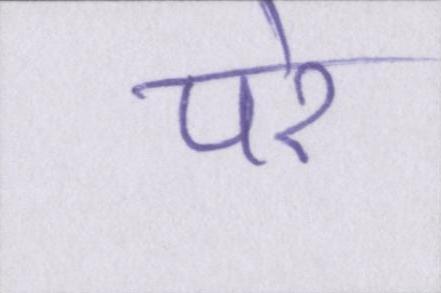 परे